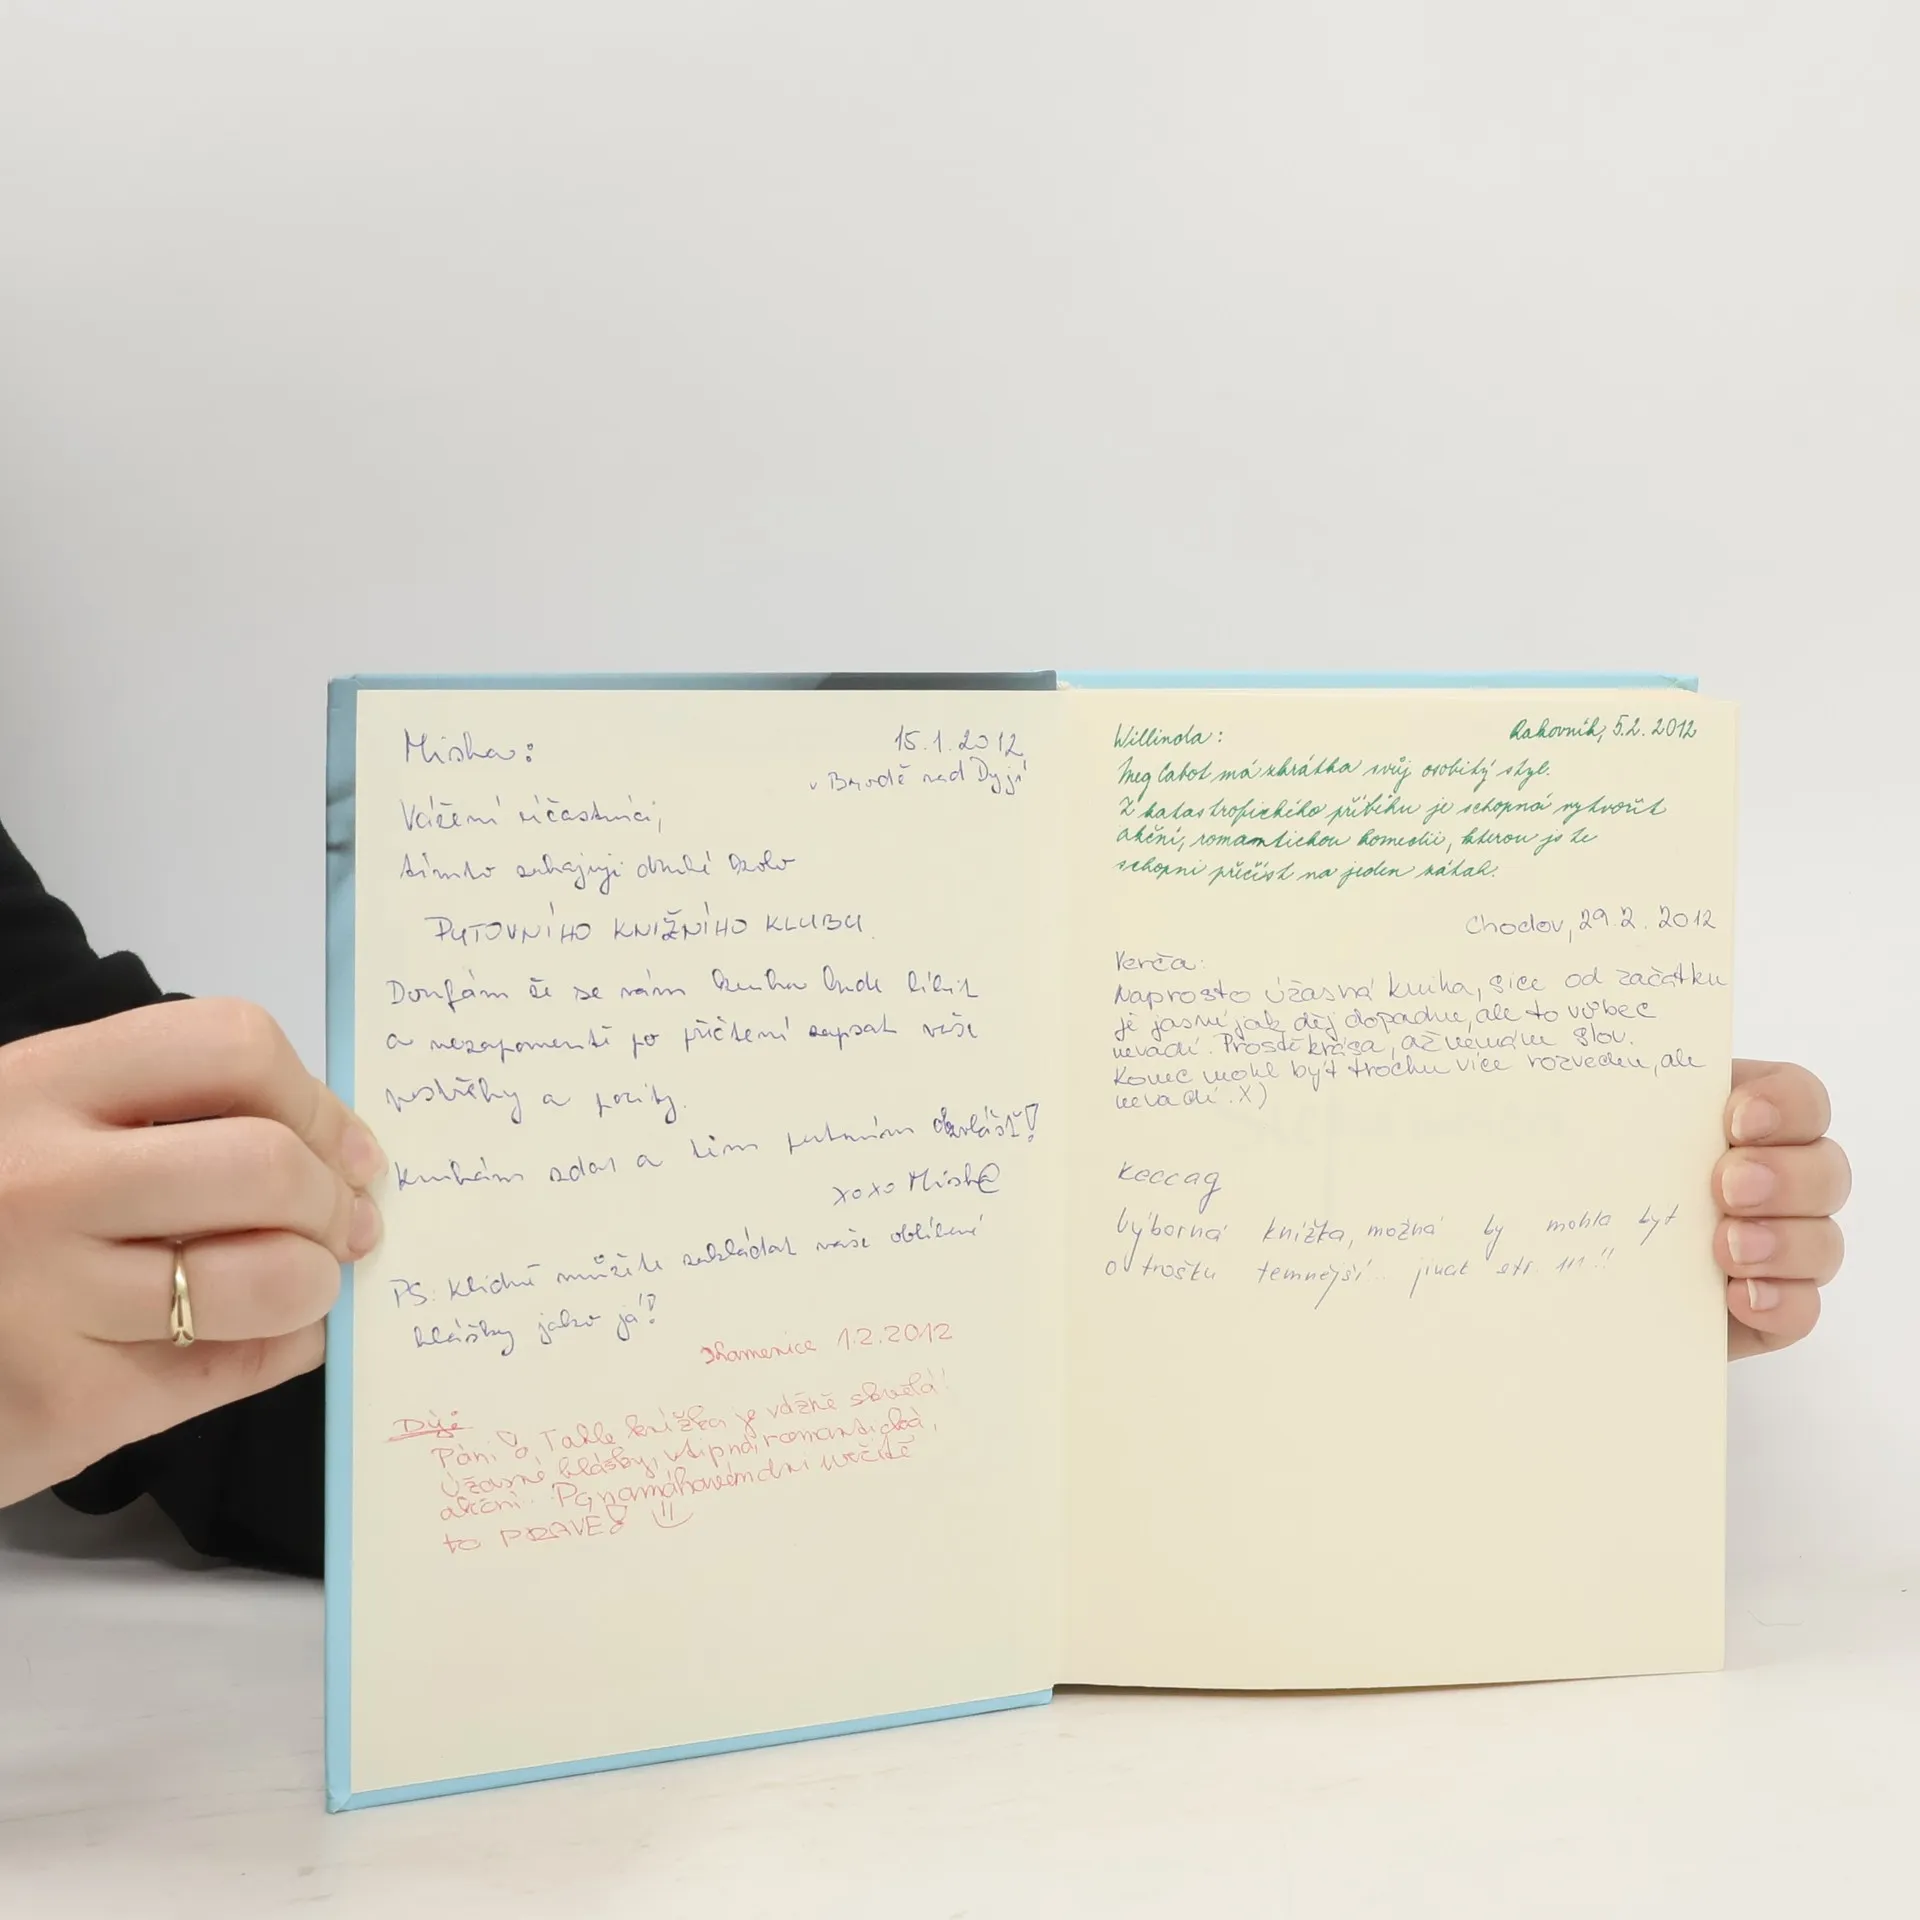 Mishka:
15.1.2012
v Brodě nad Dyjí
Vážení účastníci,
tímto zahajuji druhé kolo
PUTOVNÍHO KNIŽNÍHO KLUBU.
Doufám že se vám kniha bude líbit
a nezapomeňte po přečtení zapsat vaše
postřehy a pocity.
Knihám zdar a těm putovním obzvlášť!
xoxo Mish@
PS: Klidně můžete zakládat vaše oblíbené
hlášky jako já!
Kamenice 1.2.2012
Páni Tahle knížka je vážně skvělá!
Úžasné hlášky, vtipná, romantická,
akční.. Po namáhavém dni určitě
to PRAVÉ!
Willinola:
Rakovník, 5.2.2012
Meg Cabot má zkrátka svůj osobitý styl.
Z katastrofického příběhu je schopná vytvořit
akční, romantickou komedii, kterou jste
schopni přečíst na jeden zátah.
Chodov, 29.2.2012
Verča:
Naprosto úžasná kniha, sice od začátku
je jasné jak děj dopadne, ale to vůbec
nevadí. Prostě krása, až nemám slov.
Konec mohl být trochu více rozveden, ale
nevadí. X)
Keccag
Výborná knížka, možná by mohla být
o trošku temnější.. jinak str. 111!!